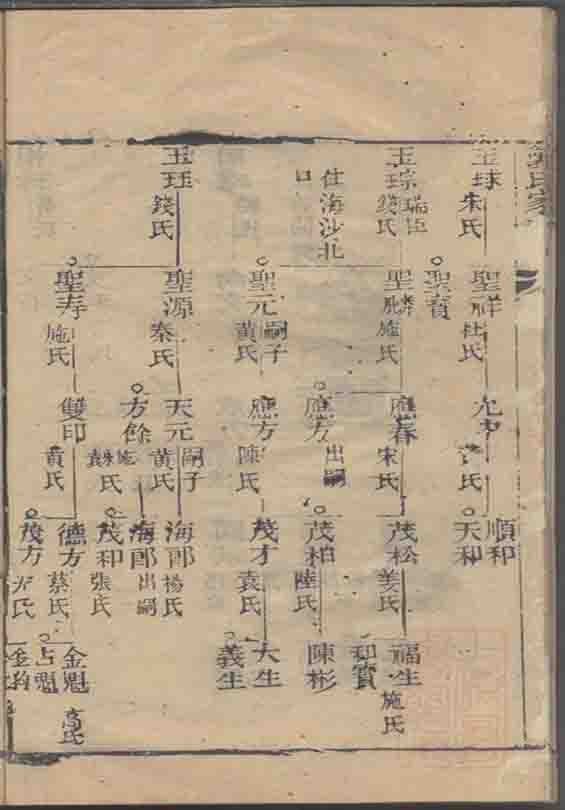 氏家
玉球
宋氏
聖祥
杜氏
順和
天和
聖寶
玉琮
瑞臣
錢氏
仕海沙北
口
聖麟
施氏
應春
宋氏
茂松
姜氏
福生
施氏
和寶
應方
出嗣
茂柏
陸氏
陳彬
聖元
嗣子
黄氏
應方
陳氏
茂才
袁氏
大生
義生
玉珏
錢氏
聖源
秦氏
天元
嗣子
黄氏
海郎
楊氏
方餘
氏
海郎
出嗣
茂和
張氏
聖寿
施氏
雙印
黄氏
德方
蔡氏
金魁
高氏
占魁
茂方
氏